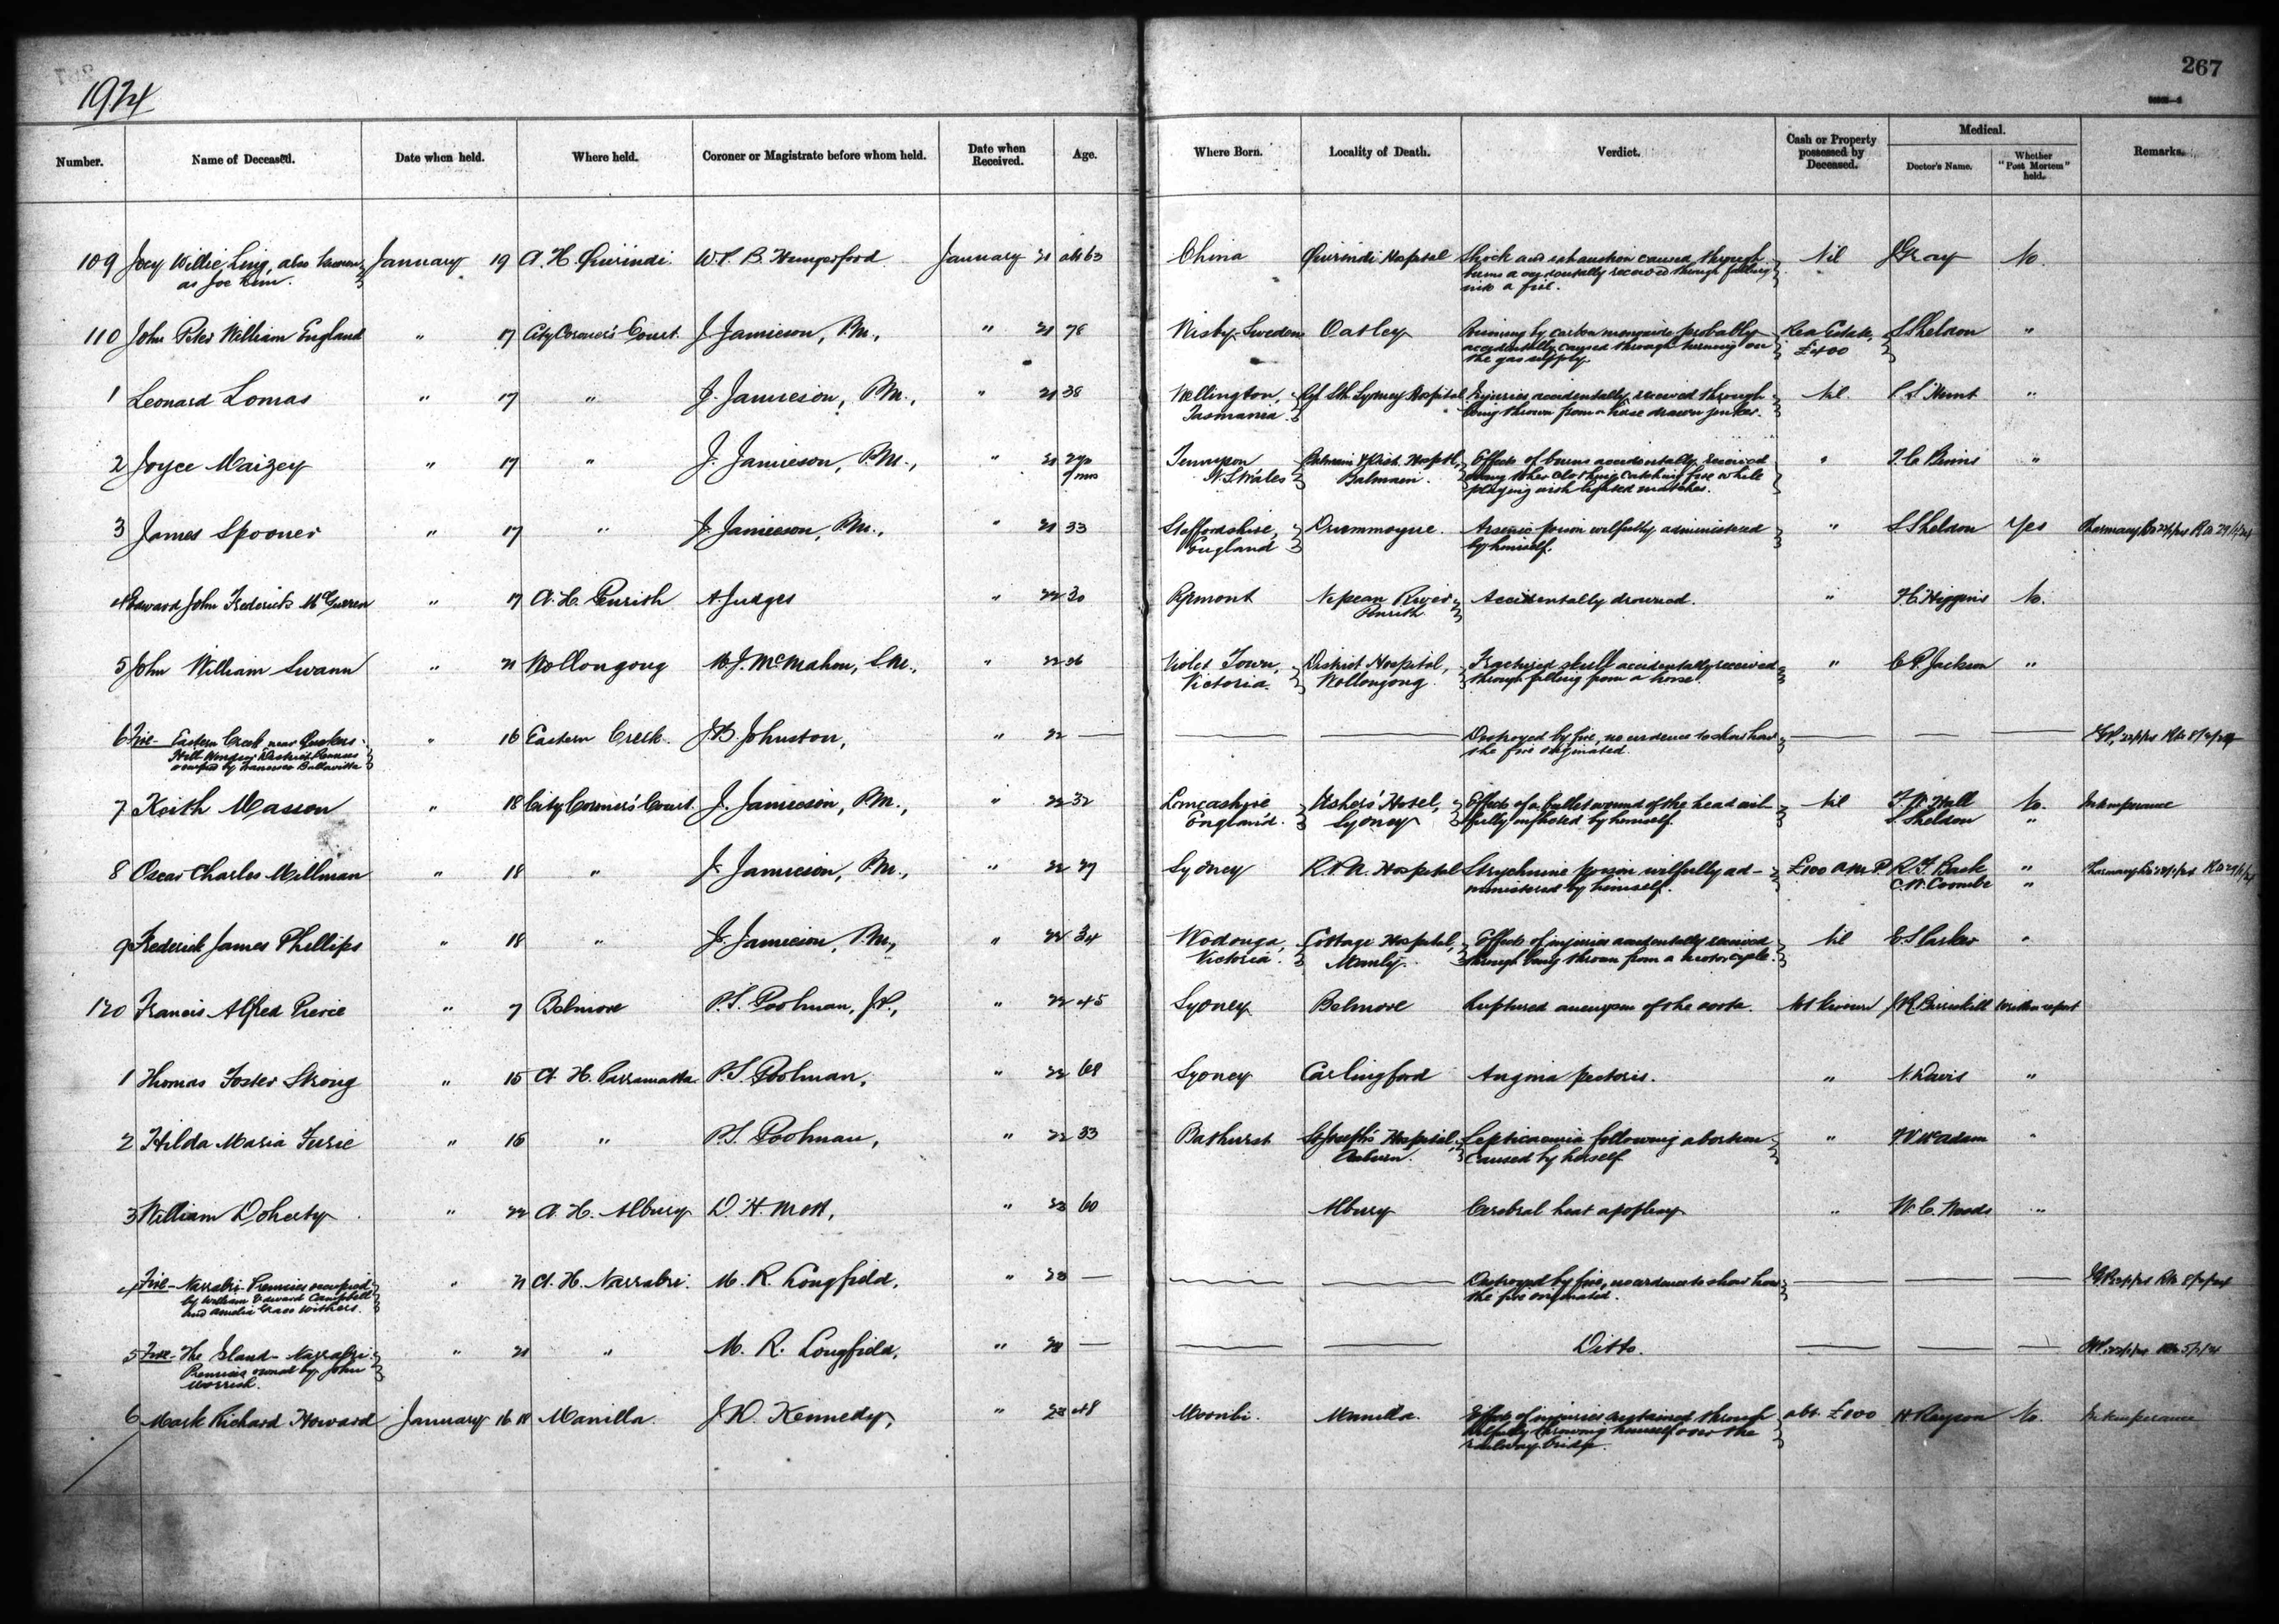 267
1924
Number. Name of Deceased. Date when held. Where held. Coroner or Magistrate before whom held. Date when Received. Age. Where Born. Locality of Death. Verdict. Cash or Property possessed by Deceased. Medical. Doctor's Name. Whether "Post Mortem" held. Remarks.
109 Joey Willie Ling, also known January 19 C. H. Quirindi W. P. B. Hungerford January 21 abt 63 China Quirindi Hospital Shock and exhaustion caused through Nil J Gray No.
as Joe Lum. burns accidentally received through falling
into a fire.
110 John Peter William England " 17 City Coroner's Court J. Jamieson, P.M., " 21 78 Wisby, Sweden Oatley Poisoning by carbon monoxide probably Real Estate, S Sheldon "
accidentally caused through turning on £400
the gas supply.
1 Leonard Lomas " 17 " J. Jamieson, P.M., " 21 38 Wellington, Ryl Sth Sydney Hospital Injuries accidentally received through Nil. "
Tasmania. being thrown from a horse drawn
2 Joyce Maizey " 17 " J. Jamieson, P.M., " 21 2 yrs Tennyson Balmain & Dist. Hosptl, Effects of burns accidentally received " "
N. S Wales Balmain. owing to her clothing catching fire while
playing with lighted matches.
3 James Spooner " 17 " J. Jamieson, P.M., " 21 33 Staffordshire, Drummoyne. Arsenic poison wilfully administered " S Sheldon Yes
England by himself.
4 Edward John Frederick McGurren " 17 C. H. Penrith A. Judges " 22 30 Pyrmont Nepean River, Accidentally drowned. " H. C. Higgins No.
Penrith
5 John William Swann " 21 Wollongong W. J. McMahon, S.M., " 22 26 Violet Town, District Hospital, Fractured skull accidentally received " C P. Jackson "
Victoria. Wollongong. through falling from a horse.
6 Fire - Eastern Creek near Quakers " 16 Eastern Creek. J. B. Johnston, " 22 — Destroyed by fire, no evidence to show how
Hill Windsor District House the fire originated.
occupied by Francesco
7 Keith Masson " 18 City Coroner's Court. J. Jamieson, P.M., " 22 32 Lancashire Ushers' Hotel, Effects of a bullet wound of the head wil- Nil Hall No. Intemperance
England. Sydney fully inflicted by himself. S. Sheldon "
8 Oscar Charles Millman " 18 " J. Jamieson, P.M., " 22 27 Sydney R. P. A. Hospital Strychnine poison wilfully ad- £100 A.M.P. "
ministered by himself. C. W. Coombe "
9 Frederick James Phillips " 18 " J. Jamieson, P.M., " 22 34 Wodonga, Cottage Hospital, Effects of injuries accidentally received Nil "
Victoria. Manly. through being thrown from a motor cycle.
120 Francis Alfred Pierce " 7 Belmore P. S. Poolman, J.P., " 22 45 Sydney Belmore Ruptured aneurysm of the aorta. Not known Written report
1 Thomas Foster Strong " 15 C. H. Parramatta P. S. Poolman, " 22 68 Sydney Carlingford Angina pectoris. " N. Davis "
2 Hilda Maria Ferrie " 16 " P. S. Poolman, " 22 33 Bathurst St Joseph's Hospital, Septicaemia following abortion " McAdam "
Auburn. caused by herself
3 William Doherty " 22 C. H. Albury D. H. Mott, " 23 60 Albury Cerebral heat apoplexy " W. C. Woods "
4 Fire - Narrabri. Premises occupied " 21 C. H. Narrabri M. R. Longfield, " 23 — Destroyed by fire, no evidence to show how
by William Edward Campbell the fire originated.
and Amelia Grace Withers.
5 Fire - The Island - Narrabri. " 21 " M. R. Longfield, " 23 — Ditto.
Premises owned by John
6 Mark Richard Howard January 16 18 Manilla J. D. Kennedy, " 23 48 Moonbi. Manilla. Effects of injuries sustained through abt. £100 No. Intemperance
wilfully throwing himself over the
railway bridge.